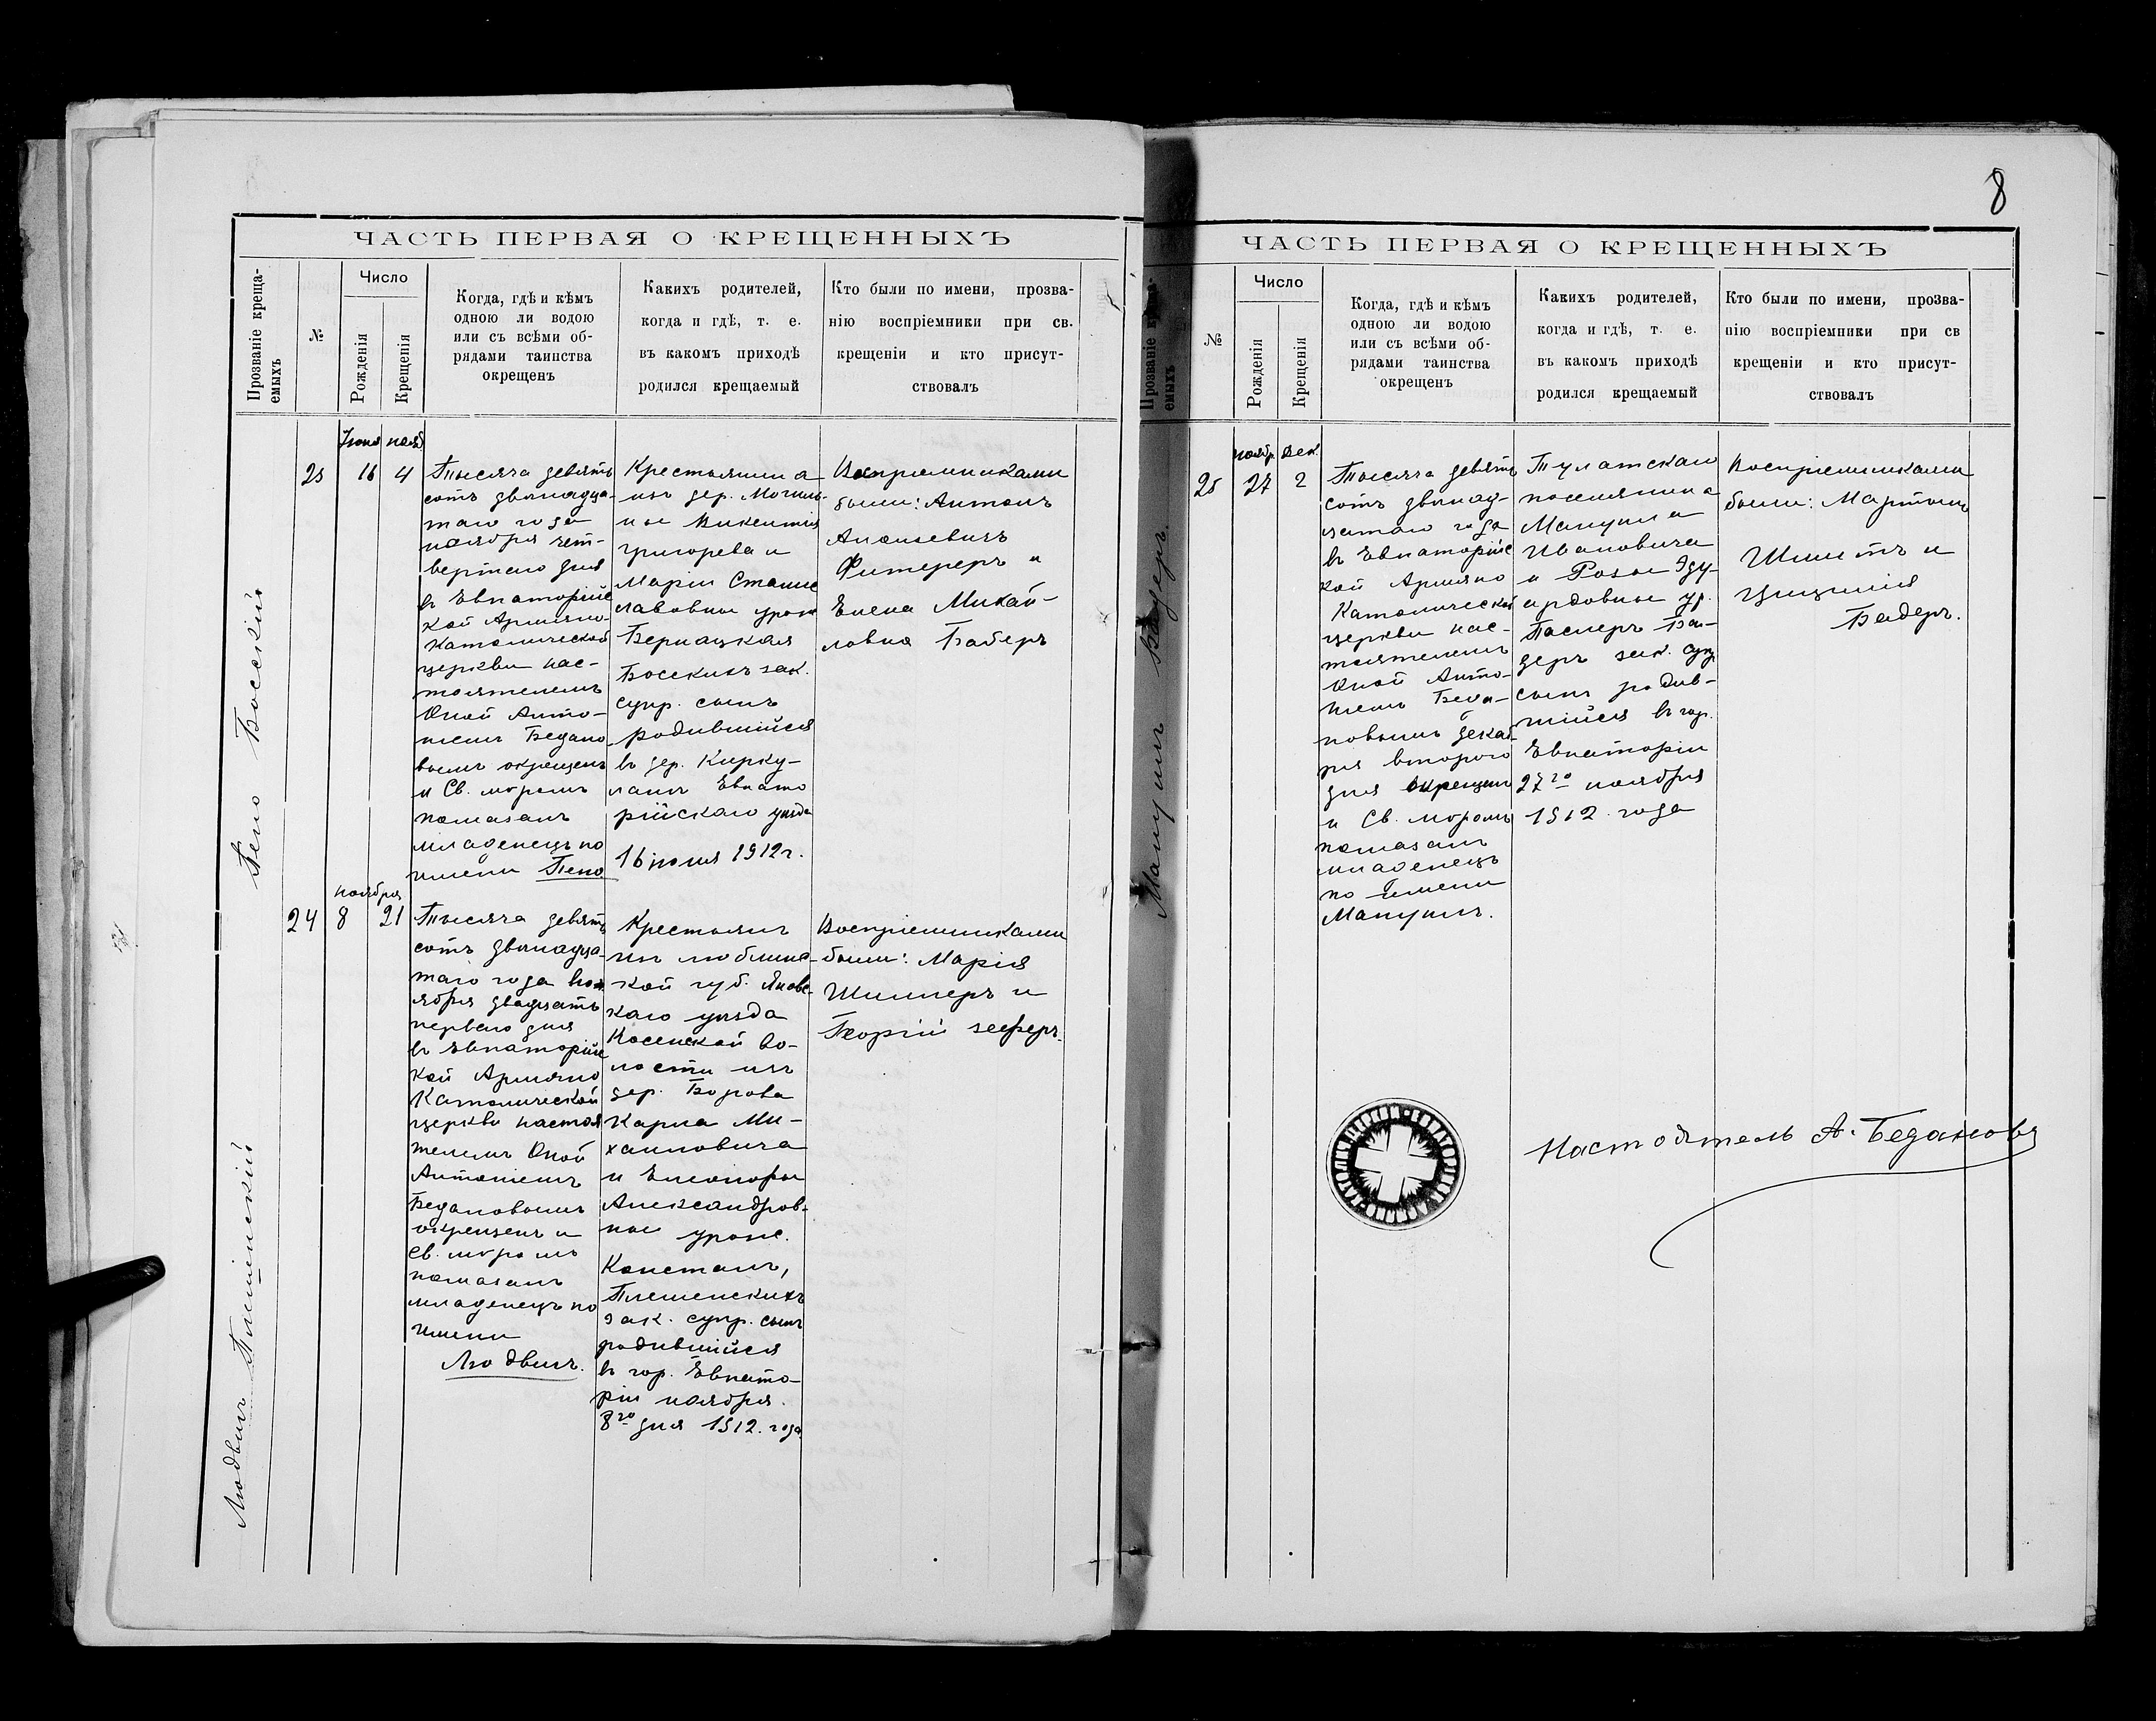 ЧАСТЬ ПЕРВАЯ О КРЕЩЕННЫХЪ
Прозваніе креща-
емыхъ
№
Число
Рожденія
Крещенія
Когда, гдѣ и кѣмъ
одною ли водою
или съ всѣми об-
рядами таинства
окрещенъ
Какихъ родителей,
когда и гдѣ, т. е.
въ какомъ приходѣ
родился крещаемый
Кто были по имени, прозва-
нію воспріемники при св.
крещеніи и кто присут-
ствовалъ
Пепо Босскій
Іюня нояб
23 16 4
Тысяча девять
сотъ двѣнадца-
таго года
ноября чет-
вертаго дня
въ Евпаторійс
кой Армяно-
Католической
церкви нас-
тоятелемъ
Оной Анто-
ніемъ Бедано
вымъ окрещенъ
и Св. мѵромъ
помазанъ
младенецъ по
имени Пепо
Крестьянина
изъ дер.
Викентія
Григорева и
Маріи Станис
лавовны урож
Бернацкая
Босскихъ зак.
супр. сынъ
родившійся
въ дер. Кирку-
лачъ Евпато
рійскаго уѣзда
16 іюня 1912 г.
Воспріемниками
были: Антонъ
Фитереръ и
Елена Михай-
ловна Бадеръ
Людвигъ Плешенскій
ноября
24 8 21
Тысяча девять
сотъ двѣнадца-
таго года но
ября двадцать
перваго дня
въ Евпаторійс
кой Армяно
Католической
церкви настоя
телемъ Оной
Антоніемъ
Бедановымъ
окрещенъ и
Св. мѵромъ
помазанъ
младенецъ по
имени
Людвигъ.
Крестьянъ
изъ люблинс-
кой губ. Яновс-
каго уѣзда
Косинской во-
лости изъ
дер. Борова
Карла Ми-
хайловича
и Елеоноры
Александров-
ны урож.
Констанъ,
Плешенскихъ
зак. супр. сынъ
родившійся
въ гор. Евпато-
ріи ноября
8го дня 1912. года
Воспріемниками
были: Марія
Шиллеръ и
Георгій Зеферъ.
8
ЧАСТЬ ПЕРВАЯ О КРЕЩЕННЫХЪ
Прозваніе креща-
емыхъ
№
Число
Рожденія
Крещенія
Когда, гдѣ и кѣмъ
одною ли водою
или съ всѣми об-
рядами таинства
окрещенъ
Какихъ родителей,
когда и гдѣ, т. е.
въ какомъ приходѣ
родился крещаемый
Кто были по имени, прозва-
нію воспріемники при св
крещеніи и кто присут-
ствовалъ
Мануилъ Бадеръ.
ноябр. дек.
25 27 2
Тысяча девять
сотъ двѣнад-
цатаго года
въ Евпаторійс
кой Армяно
Католической
церкви нас-
тоятелемъ
Оной Анто-
ніемъ Беда-
новымъ декаб-
ря второго
дня окрещенъ
и Св. мѵромъ
помазанъ
младенецъ
по имени
Мануилъ.
Тулатскаго
поселянина
Мануила
Ивановича
и Розы Эду-
ардовны ур.
Паслеръ Ба-
деръ зак. супр
сынъ родив-
шійся въ гор.
Евпаторіи
27го ноября
1912 года
Воспріемниками
были: Мартинъ
Шмитъ и
Цицилія
Бадеръ.
Настоятель А. Бедановъ